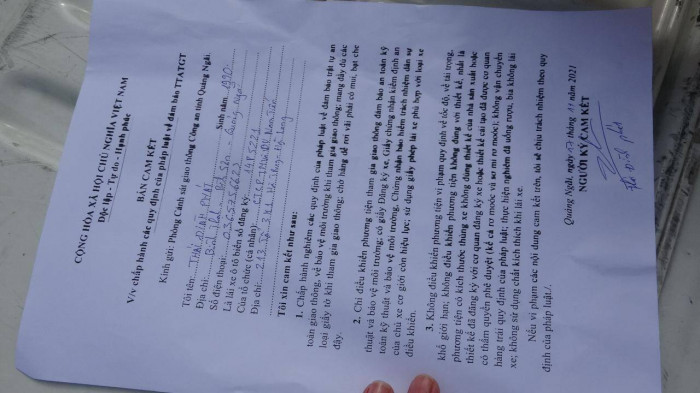 CỘNG HÒA XÃ HỘI CHỦ NGHĨA VIỆT NAM
Độc lập - Tự do - Hạnh phúc
BẢN CAM KẾT
V/v chấp hành các quy định của pháp luật về đảm bảo TTATGT
Kính gửi: Phòng Cảnh sát giao thông Công an tỉnh Quảng Ngãi.
Tôi tên: THÁI ĐÌNH PHÁT Sinh năm: 1990
Địa chỉ: Bình
Số điện thoại:
Là lái xe ô tô biển số đăng ký:
Của tổ chức (cá nhân):
Địa chỉ:
Tôi xin cam kết như sau:
1. Chấp hành nghiêm các quy định của pháp luật về đảm bảo trật tự an
toàn giao thông, về bảo vệ môi trường khi tham gia giao thông; mang đầy đủ các
loại giấy tờ khi tham gia giao thông; chở hàng dễ rơi vãi phải có mui, bạt che
đậy.
2. Chỉ điều khiển phương tiện tham gia giao thông đảm bảo an toàn kỹ
thuật và bảo vệ môi trường; có giấy Đăng ký xe, Giấy chứng nhận kiểm định an
toàn kỹ thuật và bảo vệ môi trường, Chứng nhận bảo hiểm trách nhiệm dân sự
của chủ xe cơ giới còn hiệu lực; sử dụng giấy phép lái xe phù hợp với loại xe
điều khiển.
3. Không điều khiển phương tiện vi phạm quy định về tốc độ, về tải trọng,
khổ giới hạn; không điều khiển phương tiện không đúng với thiết kế, nhất là
phương tiện có kích thước thùng xe không đúng thiết kế của nhà sản xuất hoặc
thiết kế đã đăng ký với cơ quan đăng ký xe hoặc thiết kế cải tạo đã được cơ quan
có thẩm quyền phê duyệt (kể cả rơ moóc và sơ mi rơ moóc); không vận chuyển
hàng trái quy định của pháp luật; thực hiện nghiêm đã uống rượu, bia không lái
xe; không sử dụng chất kích thích khi lái xe.
Nếu vi phạm các nội dung cam kết trên, tôi sẽ chịu trách nhiệm theo quy
định của pháp luật./.
Quảng Ngãi, ngày tháng 11 năm 2021
NGƯỜI KÝ CAM KẾT
Thái Đình Phát